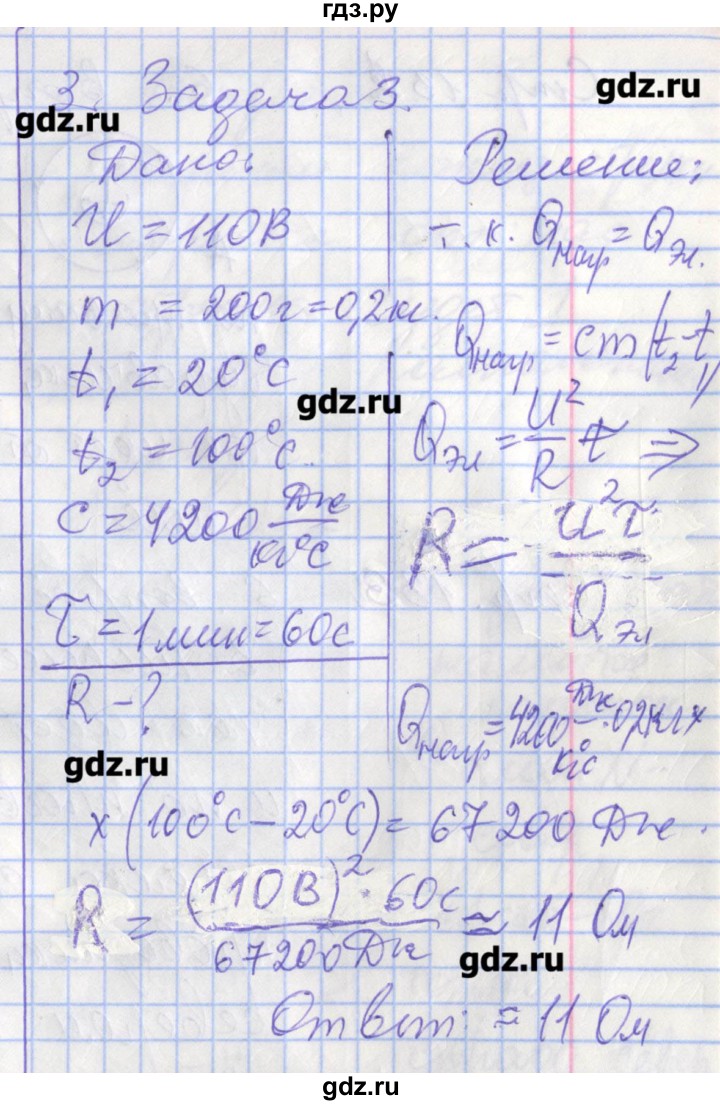 гдз.ру
3. Задача 3.
gdz.ru
gdz.ru
Дано:
U = 110В
m = 200г = 0,2кг.
t₁ = 20°C
gdz.ru
t₂ = 100°C
c = 4200 Дж/кг°C
τ = 1 мин = 60с
R - ?
gdz.ru
Решение:
т.к. Qнагр = Qэл.
Qнагр = cm(t₂-t₁)
Qэл = U²/R τ ⇒
R = U²τ/Qэл
Qнагр = 4200 Дж/кг°C · 0,2кг x
x (100°C - 20°C) = 67200 Дж.
R = (110В)² · 60с / 67200 Дж ≈ 11 Ом
gdz.ru
Ответ: ≈ 11 Ом
gdz.ru